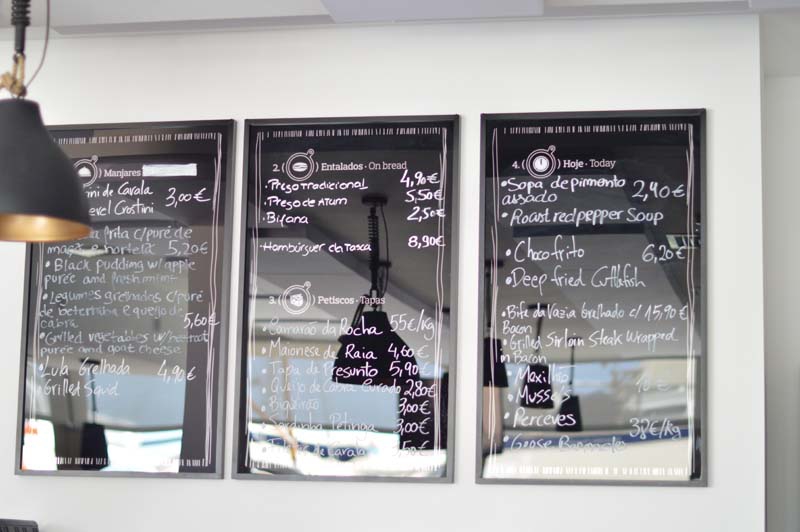 Manjares
de Cavala 3,00€
Crostini
frita c/puré de
maçã e hortelã 5,20€
• Black pudding w/ apple
purée and fresh mint
• Legumes grelhados c/puré
de beterraba e queijo de
cabra 5,60€
• Grilled vegetables w/beetroot
purée and goat cheese
• Lula Grelhada 4,90€
• Grilled Squid
2. Entalados · On bread
• Prego Tradicional 4,90€
• Prego de Atum 5,50€
• Bifana 2,50€
• Hambúrguer da Tasca 8,90€
3. Petiscos · Tapas
• Camarão da Rocha 55€/kg
• Maionese de Raia 4,60€
• Tapa de Presunto 5,90€
• Queijo de Cabra Curado 2,80€
• Biqueirão 3,00€
• Sardinha Petinga 3,00€
de Cavala
4. Hoje · Today
• Sopa de pimento 2,90€
assado
• Roast red pepper Soup
• Choco frito 6,20€
• Deep fried Cuttlefish
• Bife da Vazia Grelhado c/ 15,90€
Bacon
• Grilled Sirloin Steak Wrapped
in Bacon
• Mexilhão
• Mussels
• Perceves 38€/kg
• Goose Barnacles